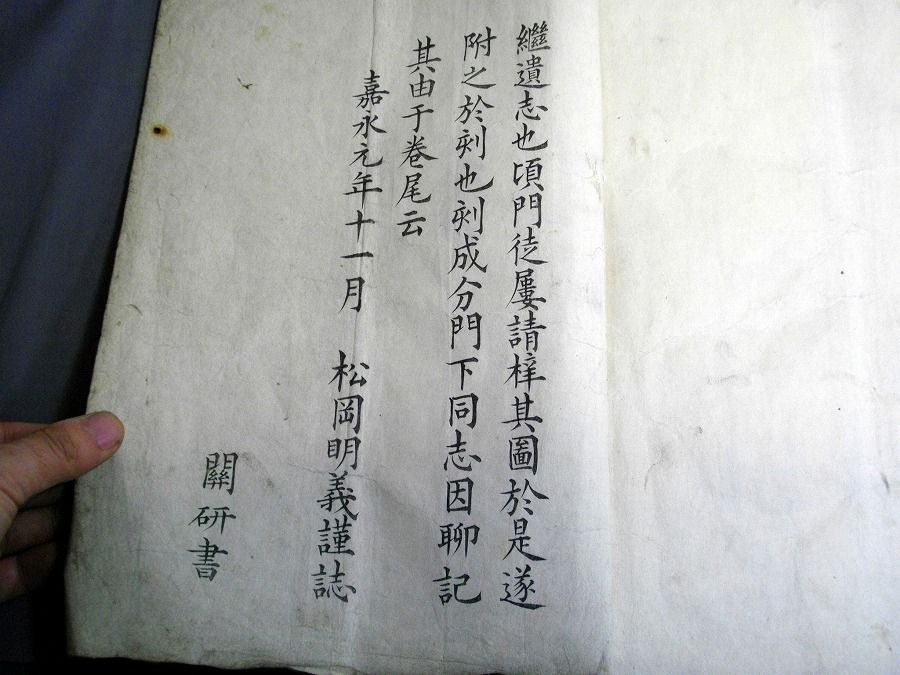 繼遺志也頃門徒屢請梓其圖於是遂
附之於刻也刻成分門下同志因聊記
其由于卷尾云
嘉永元年十一月　松岡明義謹誌
關研書